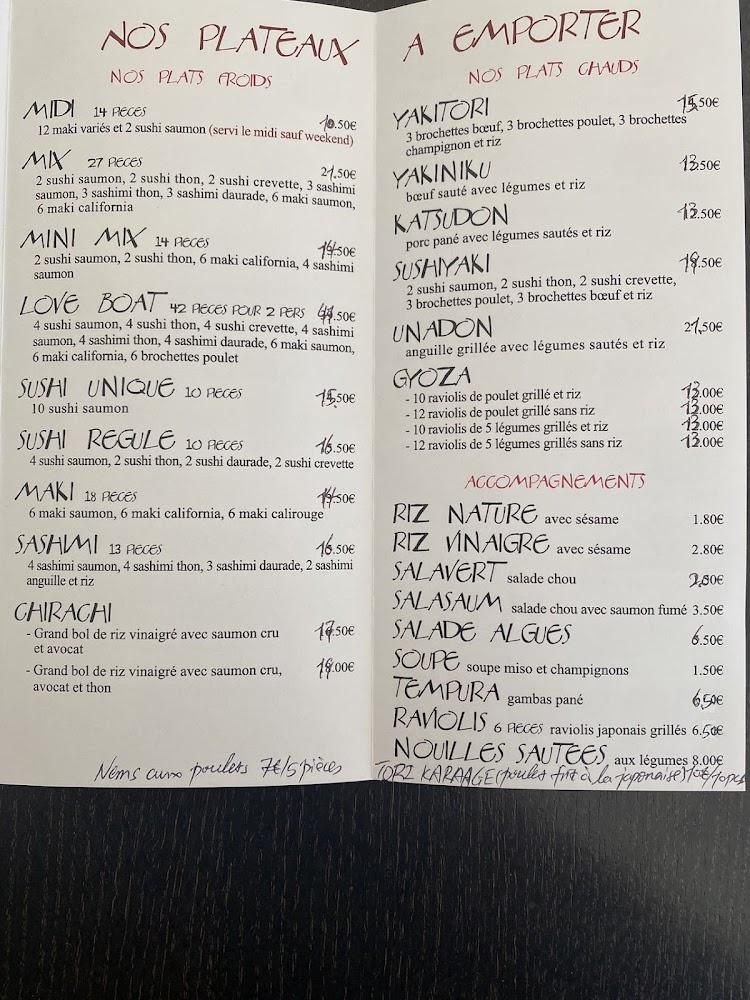 NOS PLATEAUX
NOS PLATS FROIDS
MIDI 14 PIECES 10.50€
12 maki variés et 2 sushi saumon (servi le midi sauf weekend)
MIX 27 PIECES 21.50€
2 sushi saumon, 2 sushi thon, 2 sushi crevette, 3 sashimi
saumon, 3 sashimi thon, 3 sashimi daurade, 6 maki saumon,
6 maki california
MINI MIX 14 PIECES
2 sushi saumon, 2 sushi thon, 6 maki california, 4 sashimi
saumon
LOVE BOAT 42 PIECES POUR 2 PERS
4 sushi saumon, 4 sushi thon, 4 sushi crevette, 4 sashimi
saumon, 4 sashimi thon, 4 sashimi daurade, 6 maki saumon,
6 maki california, 6 brochettes poulet
SUSHI UNIQUE 10 PIECES 15.50€
10 sushi saumon
SUSHI REGULE 10 PIECES 16.50€
4 sushi saumon, 2 sushi thon, 2 sushi daurade, 2 sushi crevette
MAKI 18 PIECES
6 maki saumon, 6 maki california, 6 maki calirouge
SASHIMI 13 PIECES 16.50€
4 sashimi saumon, 4 sashimi thon, 3 sashimi daurade, 2 sashimi
anguille et riz
CHIRACHI
- Grand bol de riz vinaigré avec saumon cru 17.50€
et avocat
- Grand bol de riz vinaigré avec saumon cru, 18.00€
avocat et thon
Nems aux poulets 7€/5 pièces
A EMPORTER
NOS PLATS CHAUDS
YAKITORI 15.50€
3 brochettes bœuf, 3 brochettes poulet, 3 brochettes
champignon et riz
YAKINIKU 13.50€
bœuf sauté avec légumes et riz
KATSUDON 13.50€
porc pané avec légumes sautés et riz
SUSHIYAKI
2 sushi saumon, 2 sushi thon, 2 sushi crevette,
3 brochettes poulet, 3 brochettes bœuf et riz
UNADON 21,50€
anguille grillée avec légumes sautés et riz
GYOZA
- 10 raviolis de poulet grillé et riz 13.00€
- 12 raviolis de poulet grillé sans riz 13.00€
- 10 raviolis de 5 légumes grillés et riz 13.00€
- 12 raviolis de 5 légumes grillés sans riz 13.00€
ACCOMPAGNEMENTS
RIZ NATURE avec sésame 1.80€
RIZ VINAIGRE avec sésame 2.80€
SALAVERT salade chou
SALASAUM salade chou avec saumon fumé 3.50€
SALADE ALGUES 6.50€
SOUPE soupe miso et champignons 1.50€
TEMPURA gambas pané 6,50€
RAVIOLIS 6 PIECES raviolis japonais grillés 6.50€
NOUILLES SAUTEES aux légumes 8.00€
TORI KARAAGE (poulet frit à la japonaise) 10€/10pcs